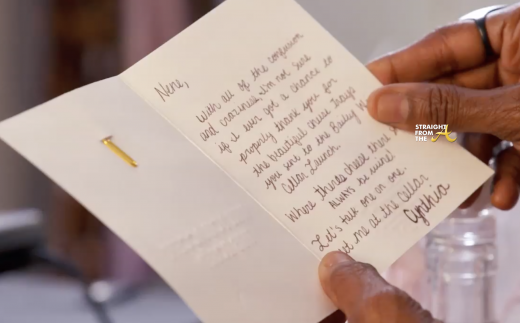 Nene,
With all of the confusion
and craziness I'm not sure
if I ever got a chance to
properly thank you for
the beautiful cheese trays
you sent to the Bailey
Cellar Launch.
Where there's cheese there
always be wine!
Let's talk one on one.
me at the Cellar
Cynthia
STRAIGHT
FROM THE
A